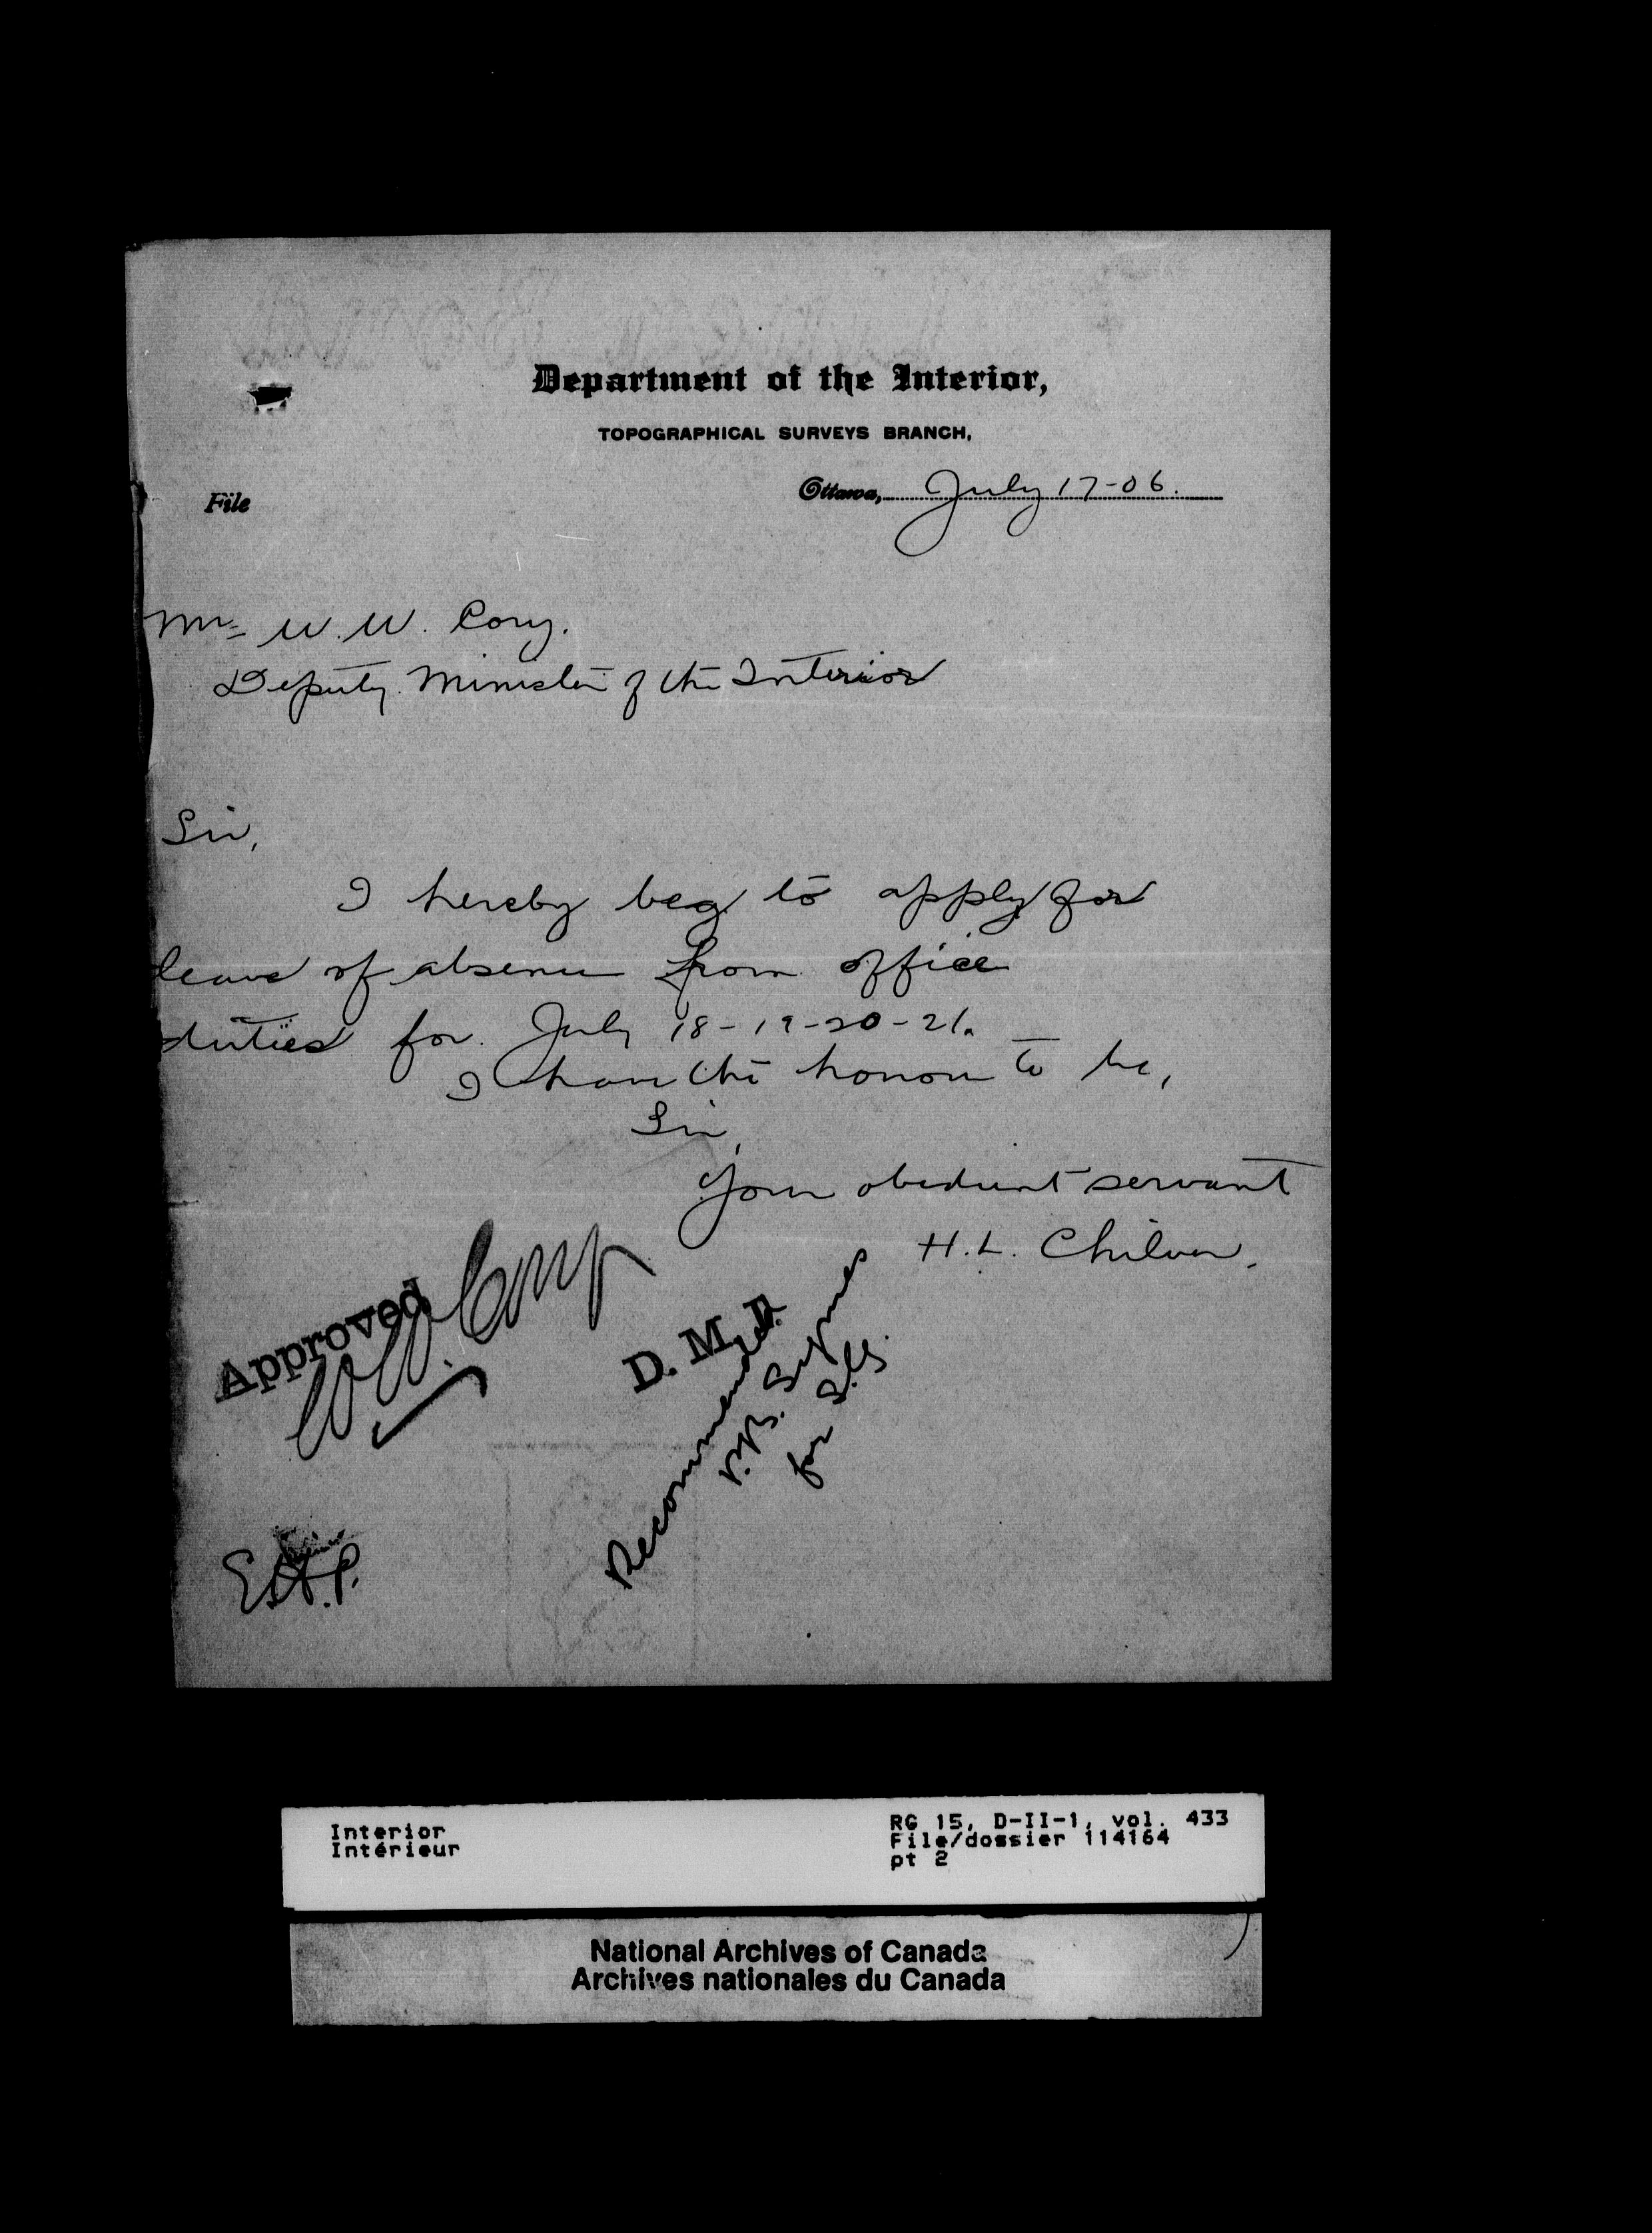 Department of the Interior,
TOPOGRAPHICAL SURVEYS BRANCH,
Ottawa, July 17-06.
File
Mr. W. W. Cory.
Deputy Minister of the Interior
Sir,
I hereby beg to apply for
leave of absence from office
duties for July 18-19-20-21.
I have the honour to be,
Sir,
Your obedient servant
H. L. Chilver.
Approved
W W. Cory
D. M. I.
Recommended
Symes
for S.G.
Interior
Intérieur
RG 15, D-II-1, vol. 433
File/dossier 114164
pt 2
National Archives of Canada
Archives nationales du Canada